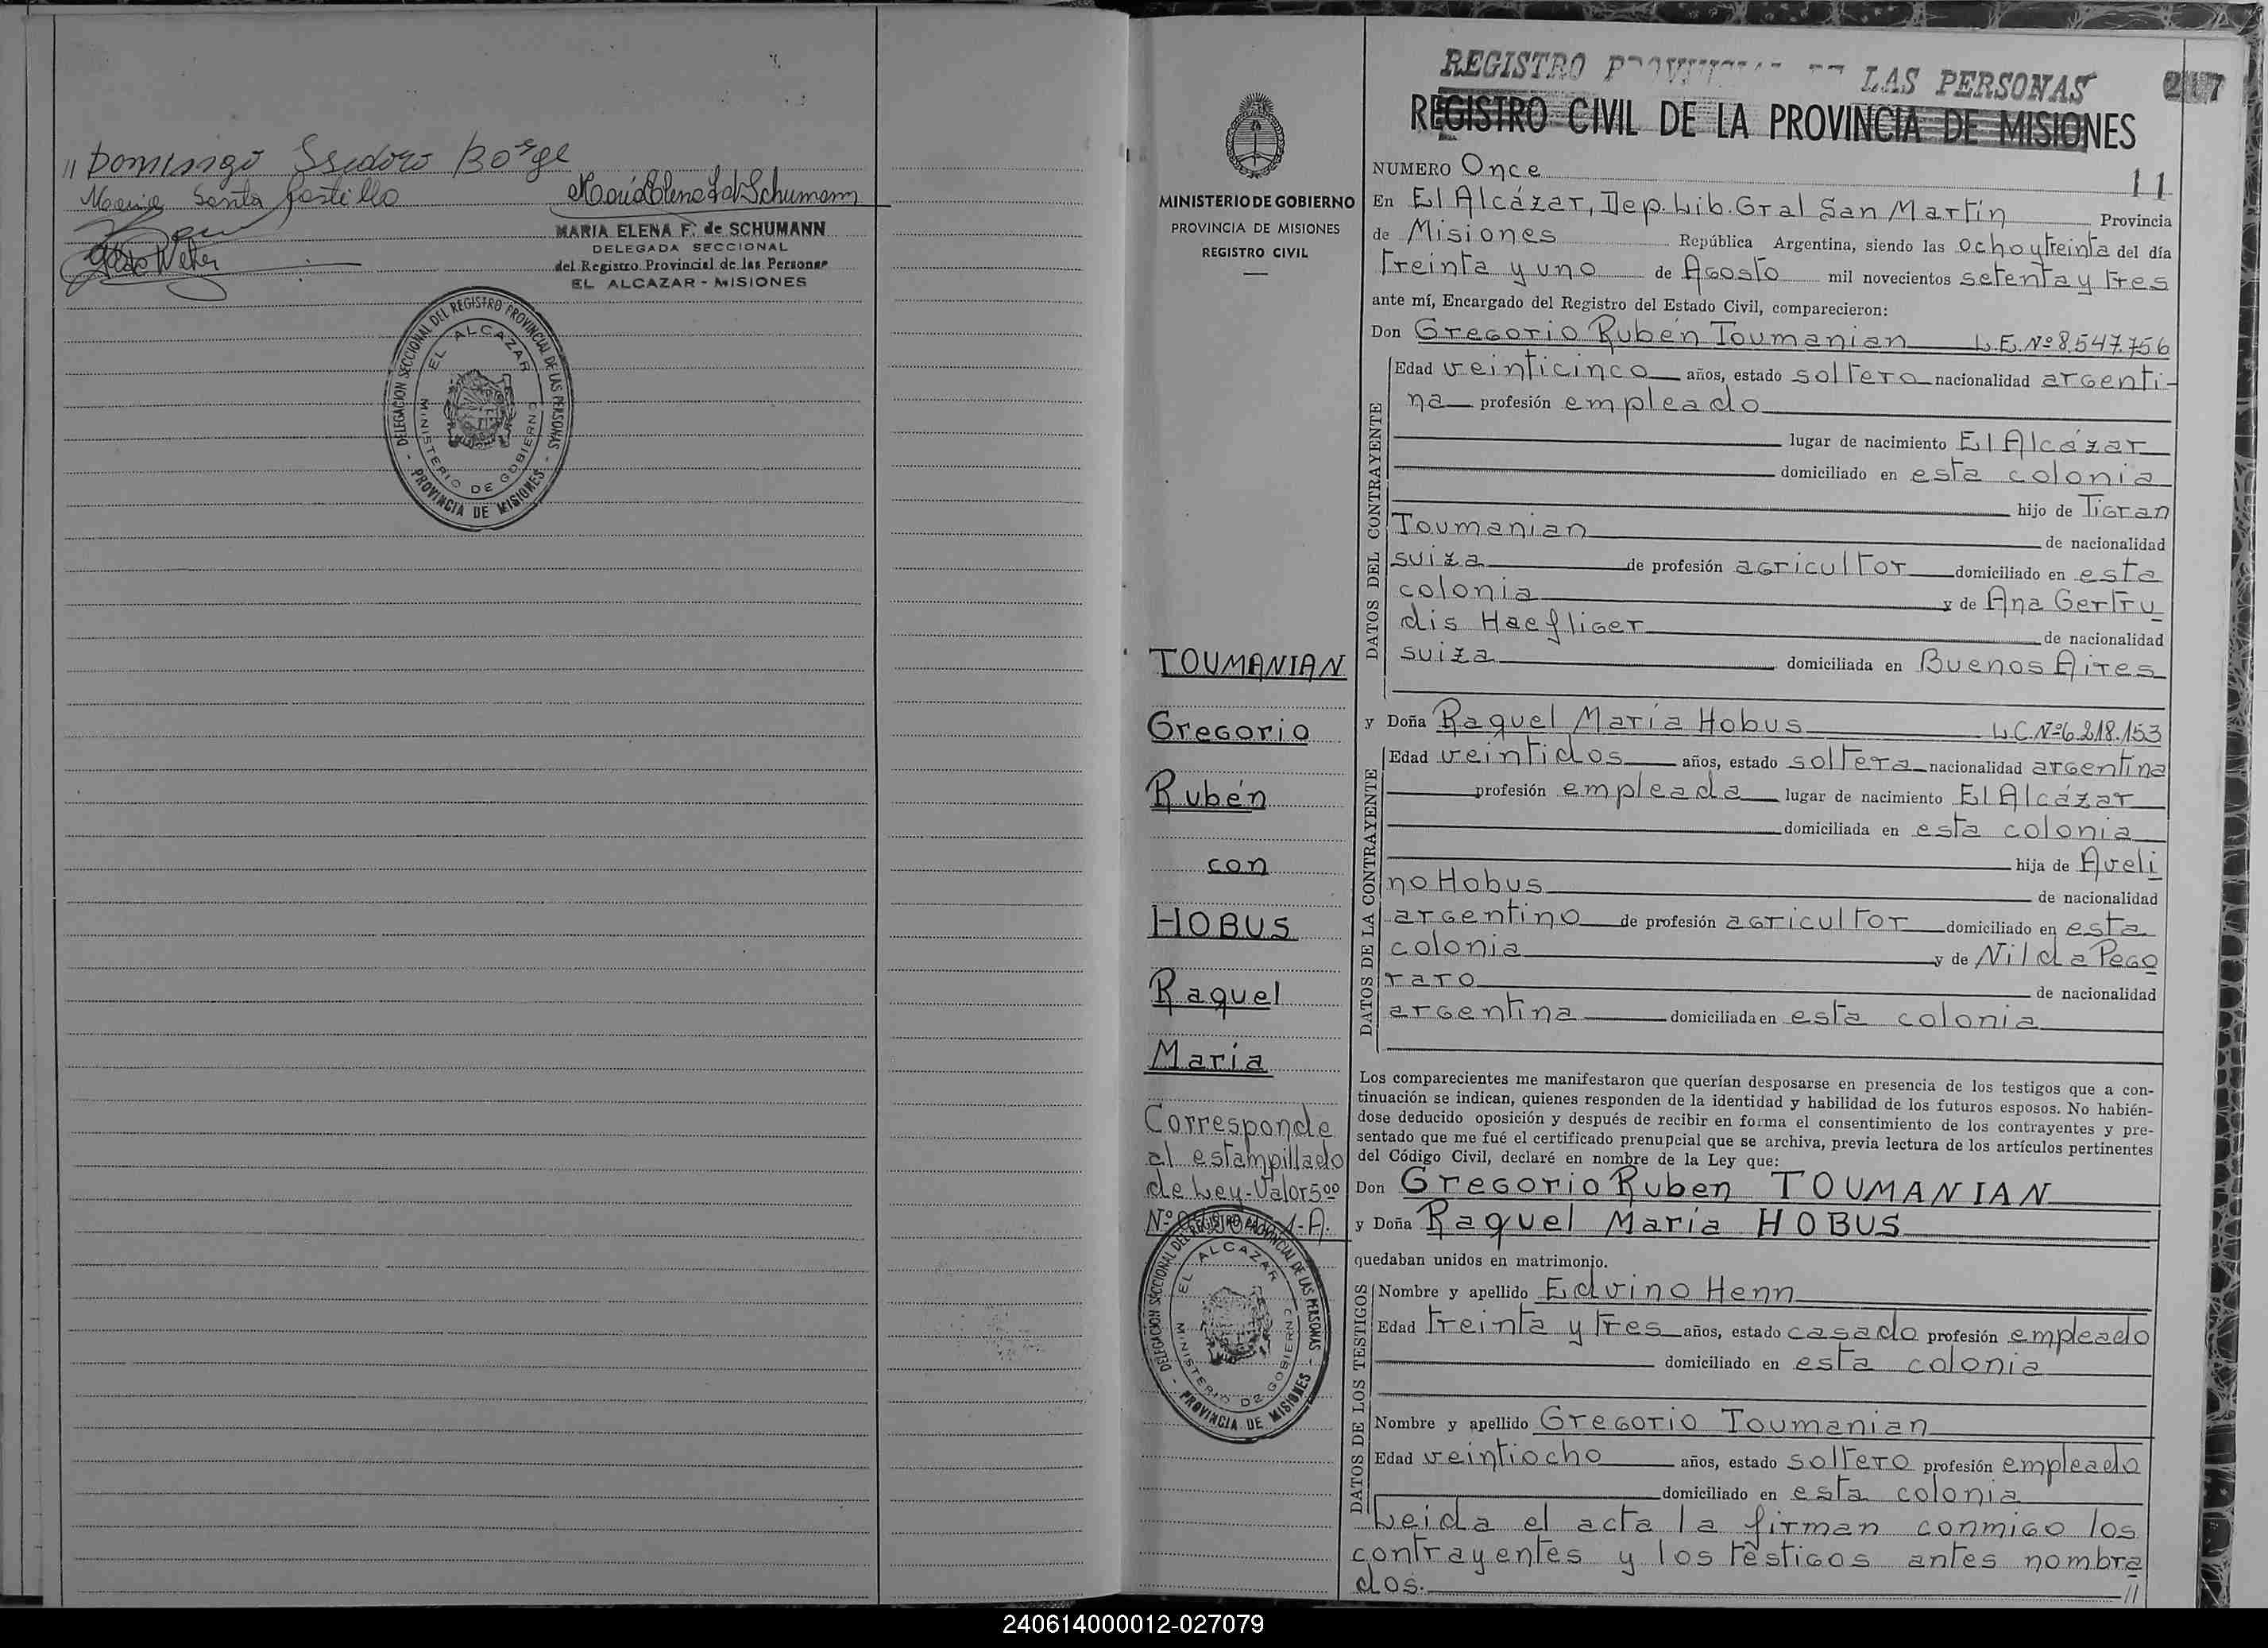 // Domingo Isidoro Borge
Maria Santa Castillo
MARIA ELENA F. de SCHUMANN
DELEGADA SECCIONAL
del Registro Provincial de las Personas
EL ALCAZAR - MISIONES
DELEGACION SECCIONAL DEL REGISTRO PROVINCIAL DE LAS PERSONAS
- PROVINCIA DE MISIONES -
EL ALCAZAR
MINISTERIO DE GOBIERNO
MINISTERIO DE GOBIERNO
PROVINCIA DE MISIONES
REGISTRO CIVIL
TOUMANIAN
Gregorio
Rubén
con
HOBUS
Raquel
María
Corresponde
al estampillado
de Ley-Valor 5.00
Nº 1-A.
DELEGACION SECCIONAL DEL REGISTRO PROVINCIAL DE LAS PERSONAS
- PROVINCIA DE MISIONES -
EL ALCAZAR
MINISTERIO DE GOBIERNO
REGISTRO PROVINCIAL DE LAS PERSONAS
REGISTRO CIVIL DE LA PROVINCIA DE MISIONES
NUMERO Once
11
En El Alcázar, Dep. Lib. Gral San Martín Provincia
de Misiones República Argentina, siendo las ocho y treinta del día
treinta y uno de Agosto mil novecientos setenta y tres
ante mí, Encargado del Registro del Estado Civil, comparecieron:
Don Gregorio Rubén Toumanian L.E. Nº 8.547.756
DATOS DEL CONTRAYENTE
Edad veinticinco años, estado soltero nacionalidad argenti-
na profesión empleado
lugar de nacimiento El Alcázar
domiciliado en esta colonia
hijo de Tigran
Toumanian de nacionalidad
suiza de profesión agricultor domiciliado en esta
colonia y de Ana Gertru
dis Haefliger de nacionalidad
suiza domiciliada en Buenos Aires
y Doña Raquel María Hobus L.C. Nº 6.218.153
DATOS DE LA CONTRAYENTE
Edad veintidos años, estado soltera nacionalidad argentina
profesión empleada lugar de nacimiento El Alcázar
domiciliada en esta colonia
hija de Aveli
no Hobus de nacionalidad
argentino de profesión agricultor domiciliado en esta
colonia y de Nilda Pego
raro de nacionalidad
argentina domiciliada en esta colonia
Los comparecientes me manifestaron que querían desposarse en presencia de los testigos que a con-
tinuación se indican, quienes responden de la identidad y habilidad de los futuros esposos. No habién-
dose deducido oposición y después de recibir en forma el consentimiento de los contrayentes y pre-
sentado que me fué el certificado prenupcial que se archiva, previa lectura de los artículos pertinentes
del Código Civil, declaré en nombre de la Ley que:
Don Gregorio Ruben TOUMANIAN
y Doña Raquel Maria HOBUS
quedaban unidos en matrimonio.
DATOS DE LOS TESTIGOS
Nombre y apellido Edvino Henn
Edad treinta y tres años, estado casado profesión empleado
domiciliado en esta colonia
Nombre y apellido Gregorio Toumanian
Edad veintiocho años, estado soltero profesión empleado
domiciliado en esta colonia
Leida el acta la firman conmigo los
contrayentes y los testigos antes nombra
dos. //
240614000012-027079